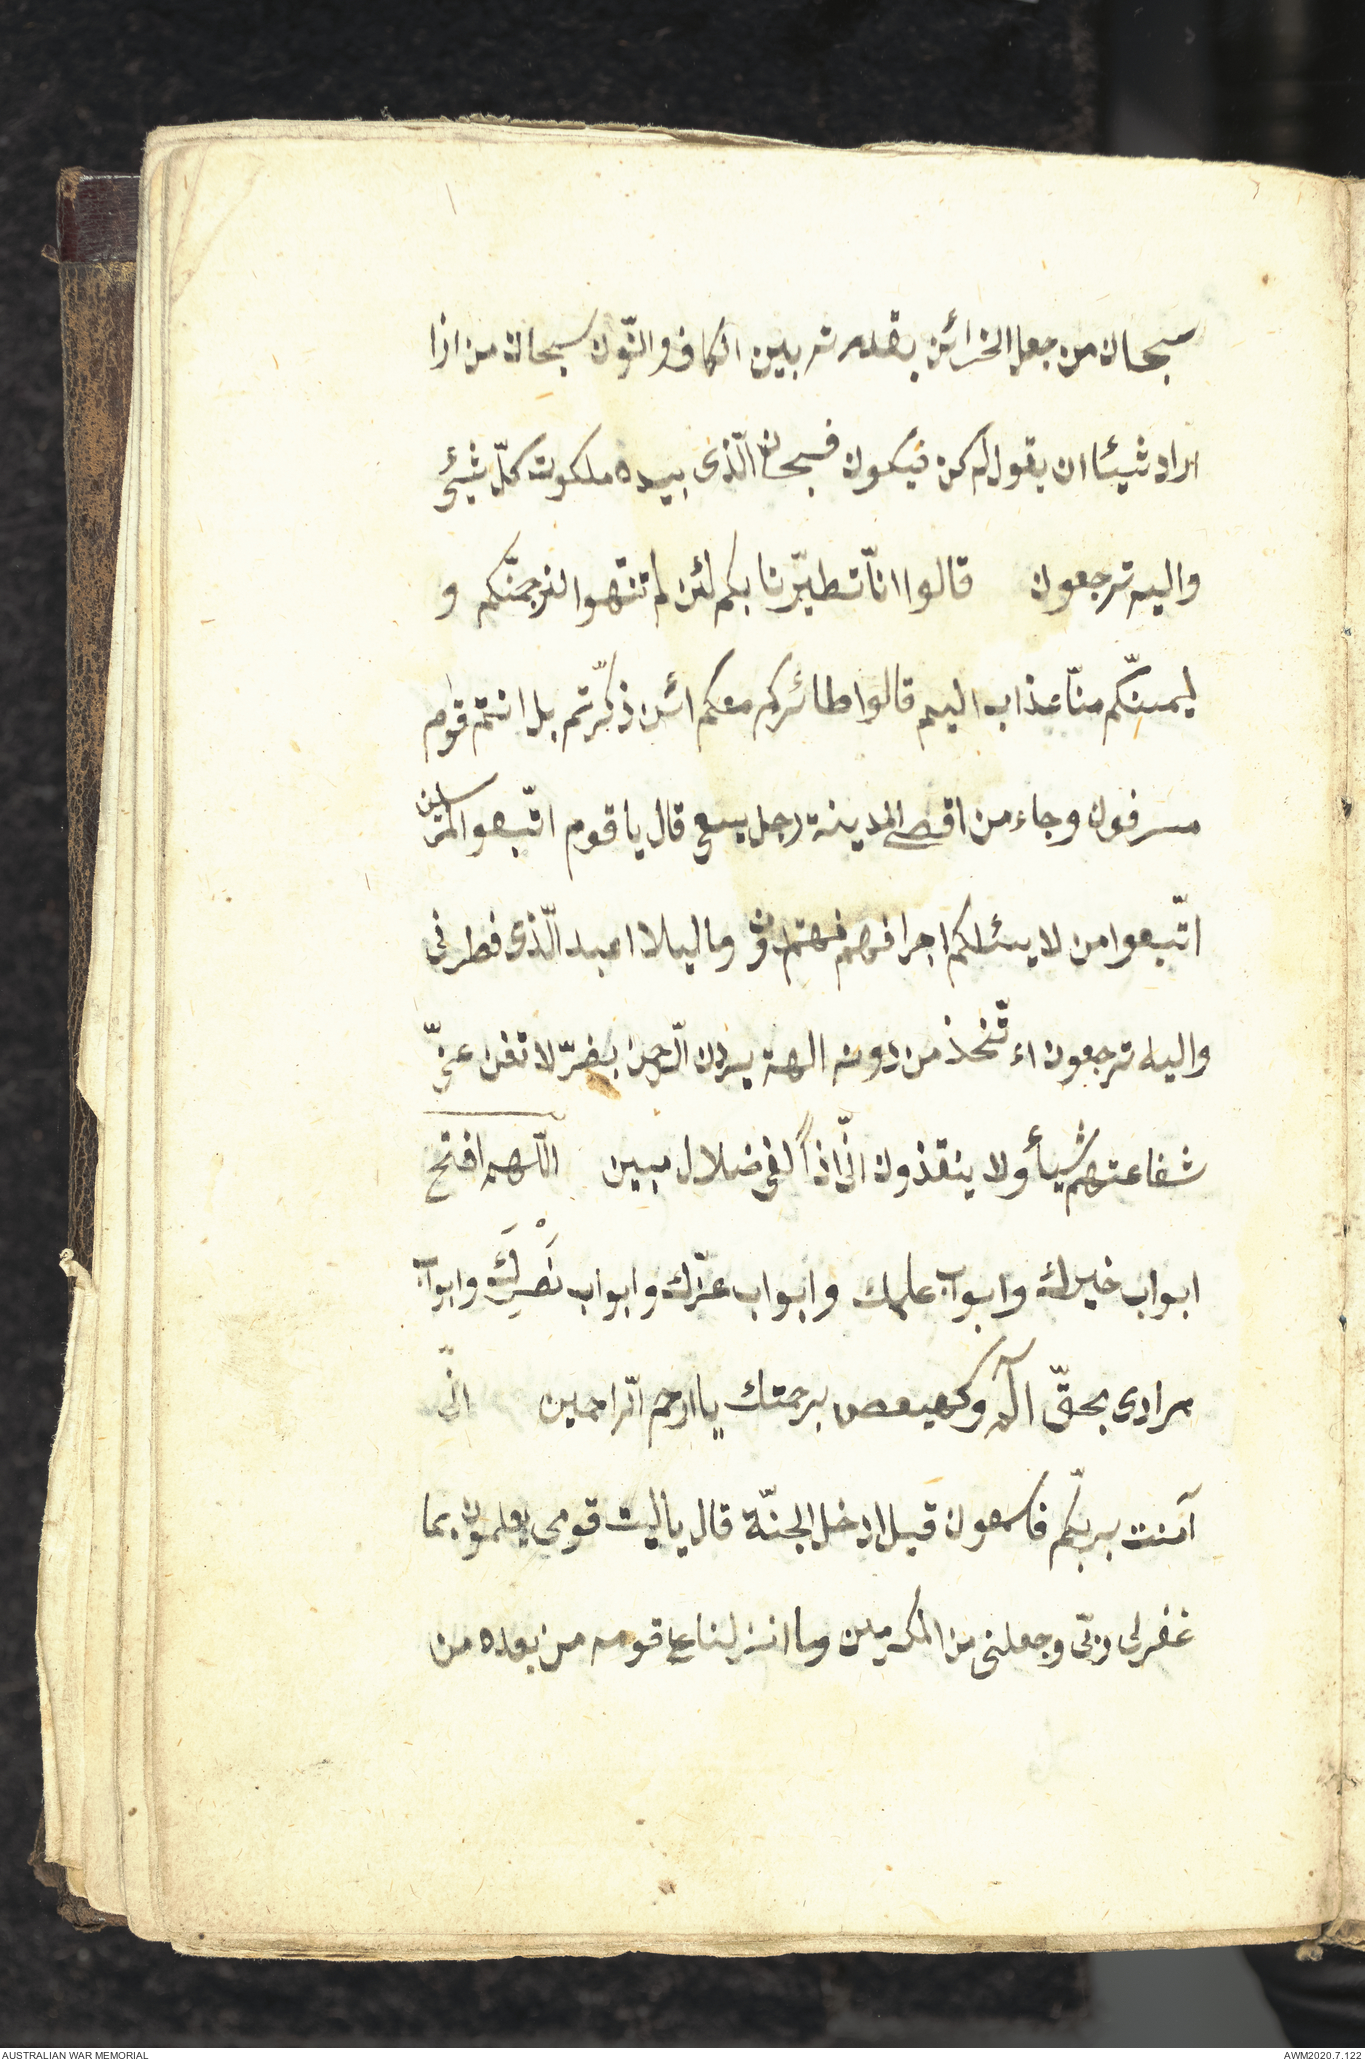 سبحان من جعل الخزائن بقدرته بين الكاف والنّون سبحان من اذا
اراد شيئا ان يقول له كن فيكون فسبحان الّذى بيده ملكوت كلّ شيئ
واليه ترجعون قالوا انّا تطيّرنا بكم لئن لم تنتهوا لنرجمنّكم و
ليمسنّكم منّا عذاب اليم قالوا طائركم معكم ائن ذكّرتم بل انتم قوم
مسرفون وجاء من اقصى المدينة رجل يسعى قال يا قوم اتّبعوا المرسلين
اتّبعوا من لا يسئلكم اجرا فهم مهتدون وما ليلا اعبد الّذى فطرنى
واليه ترجعون اء تّخذ من دونه الهة يردن الرّحمن بضرّ لا تغن عنّى
شفاعتهم شيأ ولا ينقذون انّى اذاً لفى ضلال مبين اللّهم افتح
ابواب خيرك وابواب علمك وابواب عزّك وابواب نَصْرِكَ وابواب
مرادى بحقّ الم وكهيعص برحمتك يا ارحم الرّاحمين انّى
آمنت بربّكم فاسمعون قيل ادخل الجنّة قال يا ليت قومى يعلمون بما
غفر لى ربّى وجعلنى من المكرمين وما انزلنا على قومه من بعده من
AUSTRALIAN WAR MEMORIAL
AWM2020.7.122